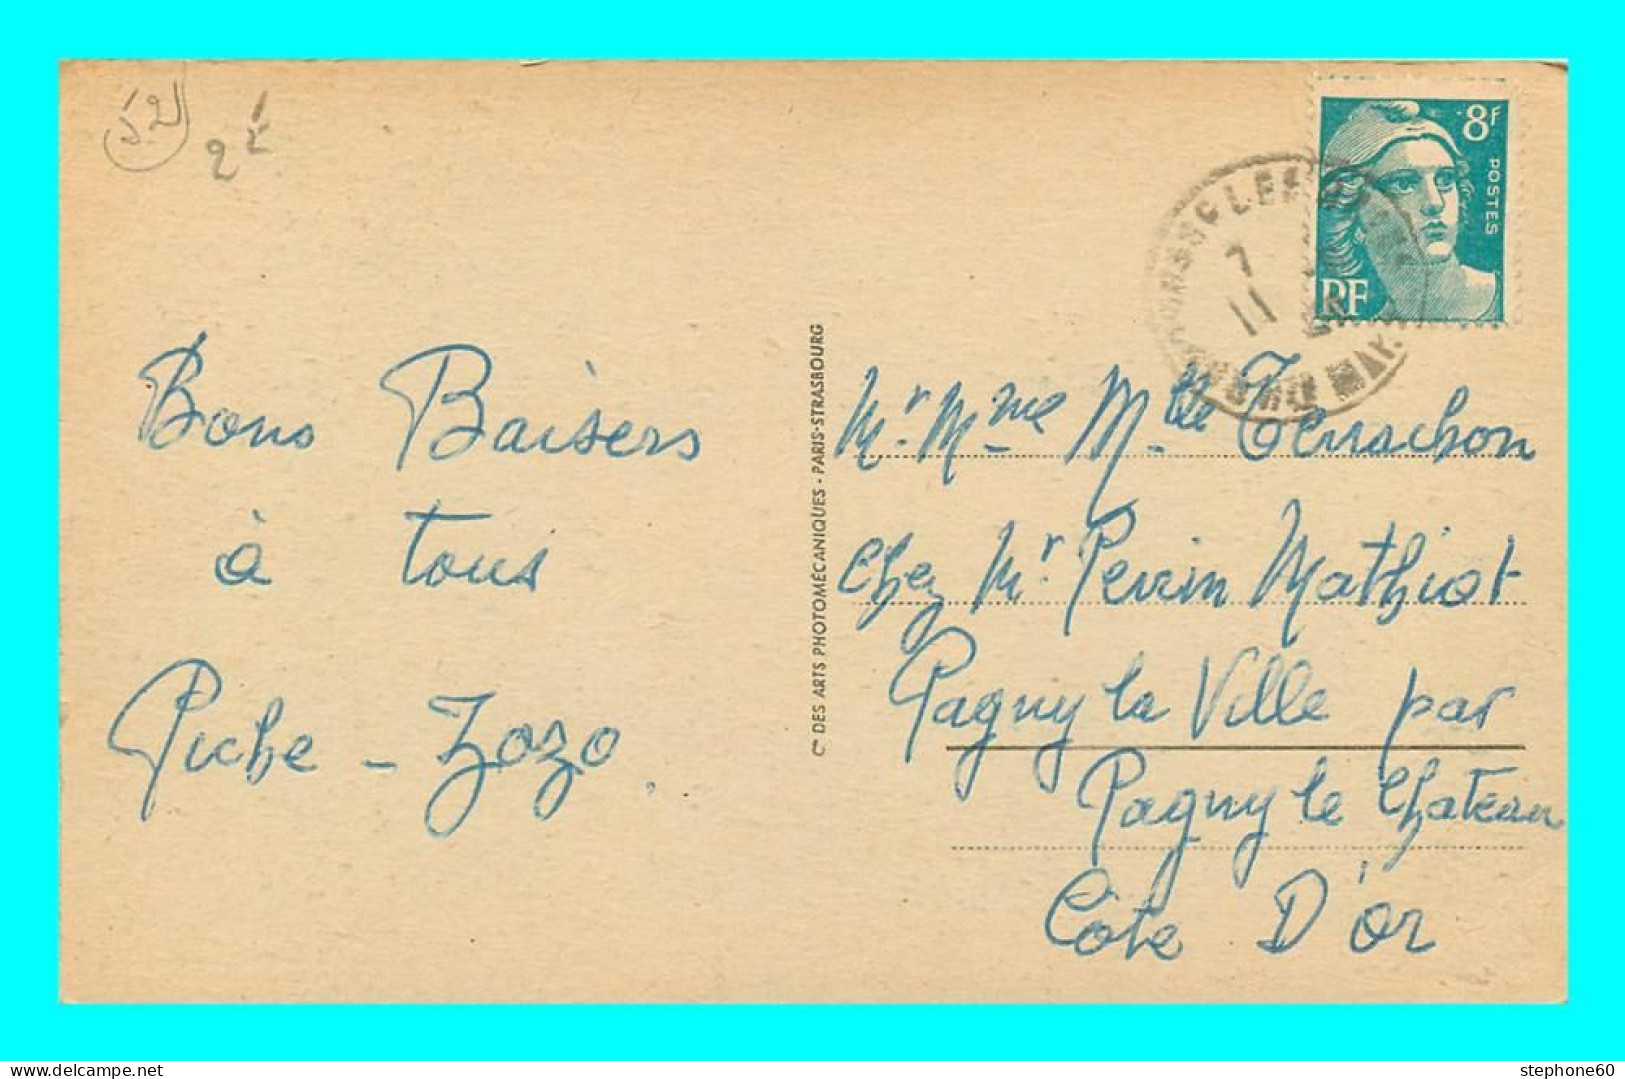 52
2€
8F
POSTES
RF
7
11
Bons Baisers
à tous
Piche - Zozo.
Cie DES ARTS PHOTOMÉCANIQUES - PARIS-STRASBOURG
Mr. Mme Mlle Terrachon
chez Mr. Perrin Mathiot
Pagny la Ville par
Pagny le Chateau
Côte D'or
www.delcampe.net
stephone60